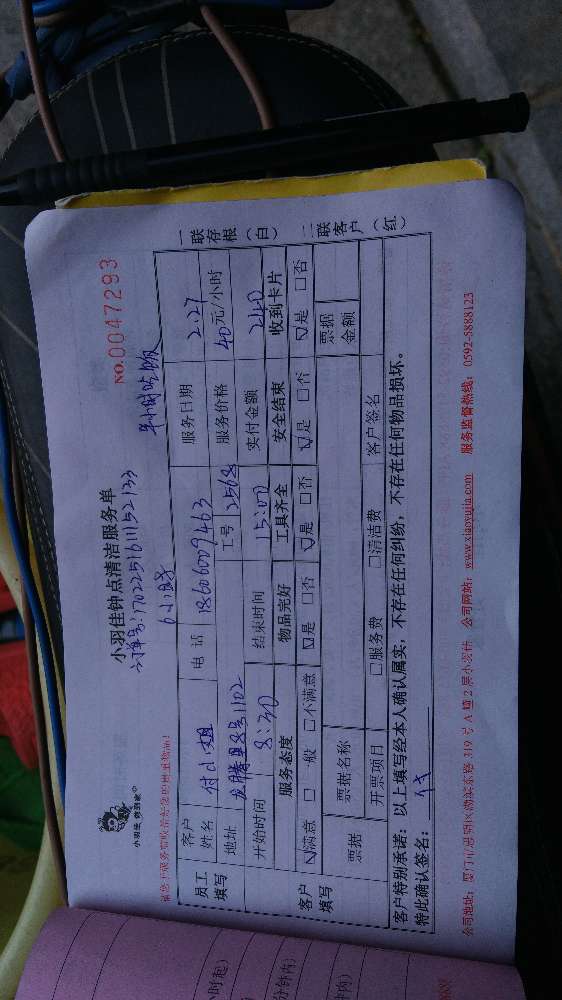 小羽佳 您到家
小羽佳钟点清洁服务单
NO.0047293
订单号:1702251611152133
6小时
半小时吃饭
员工填写
客户姓名 付小姐 电话 18606009463 服务日期 2.27
地址 龙腾 1102 工号 2568 服务价格 40元/小时
开始时间 8:30 结束时间 15:00 实付金额 240
客户填写
服务态度 物品完好 工具齐全 安全结束 收到卡片
☑满意 □一般 □不满意 ☑是 □否 ☑是 □否 ☑是 □否 ☑是 □否
票据 票据名称 票据金额
开票项目 □服务费 □清洁费 客户签名
客户特别承诺:以上填写经本人确认属实,不存在任何纠纷,不存在任何物品损坏。
特此确认签名:付
公司地址:厦门市思明区湖滨东路319号A幢2层小羽佳 公司网站:www.xiaoyujia.com 服务监督热线:0592-5888123
一联存根(白) 二联客户(红)